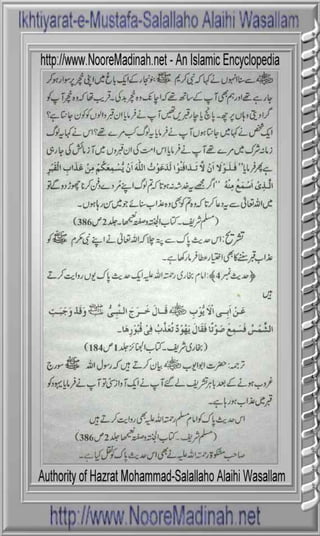 Ikhtiyarat-e-Mustafa-Salallaho Alaihi Wasallam
http://www.NooreMadinah.net - An Islamic Encyclopedia
سے سنا انہوں نے کہا کہ نبی کریم ﷺ بنو نجار کے ایک باغ میں اپنی خچر پر سوار ہو کر
جا رہے تھے اور ہم بھی آپ کے ساتھ تھے کہ اچانک وہ خچر بدکی۔ قریب تھا کہ وہ خچر آپ کو
گرا دیتی وہاں پر چھ، پانچ یا چار قبریں تھیں آپ نے فرمایا ان قبر والوں کو کون جانتا ہے؟
ایک شخص نے کہا میں جانتا ہوں آپ نے فرمایا یہ لوگ کب مرے تھے؟ اس نے کہا یہ لوگ
زمانہ شرک میں مرے تھے آپ نے فرمایا اس امت کی ان قبروں میں آزمائش کی جا رہی
ہے پھر فرمایا "فَلَوْلَا أَنْ لَّا تَدَافَنُوا لَدَعَوْتُ اللّٰهَ أَنْ يُّسْمِعَكُمْ مِنْ عَذَابِ الْقَبْرِ
الَّذِي أَسْمَعُ مِنْهُ" اگر مجھے یہ خدشہ نہ ہوتا کہ تم لوگ اپنے مردے دفن کرنا چھوڑ دو گے تو
میں اللہ تعالیٰ سے یہ دعا کرتا کہ وہ تم کو بھی وہ عذاب سنائے جو میں سن رہا ہوں۔
(مسلم شریف۔ کتاب الجنۃ وصفۃ نعیمھا۔ جلد 2 ص 386)
تشریح: اس حدیث پاک سے پتہ چلا کہ اللہ تعالیٰ نے اپنے نبی مکرم ﷺ کو
عذاب قبر سننے کا بھی اختیار عطا فرما رکھا ہے۔
﴿حدیث نمبر 4﴾: امام بخاری رحمۃ اللہ علیہ ایک حدیث پاک یوں روایت کرتے
ہیں
عَنْ أَبِي أَيُّوْبَ ﷺ قَالَ خَرَجَ النَّبِيُّ ﷺ وَقَدْ وَجَبَتِ
الشَّمْسُ فَسَمِعَ صَوْتًا فَقَالَ يَهُوْدُ تُعَذَّبُ فِي قُبُوْرِهَا۔
(بخاری شریف۔ کتاب الجنائز جلد 1 ص 184)
ترجمہ: حضرت ابو ایوب بیان کرتے ہیں کہ رسول اللہ ﷺ سورج
غروب ہونے کے بعد باہر تشریف لے گئے آپ نے ایک آواز سنی تو آپ نے فرمایا یہود کو
قبر میں عذاب ہو رہا ہے۔
اس حدیث پاک کو امام مسلم رحمۃ اللہ علیہ بھی روایت کرتے ہیں
(مسلم شریف۔ کتاب الجنۃ وصفۃ نعیمھا جلد 2 ص 386)
صاحب مشکوٰۃ رحمۃ اللہ علیہ نے بھی اس حدیث پاک کو نقل کیا ہے۔
Authority of Hazrat Mohammad-Salallaho Alaihi Wasallam
http://www.NooreMadinah.net